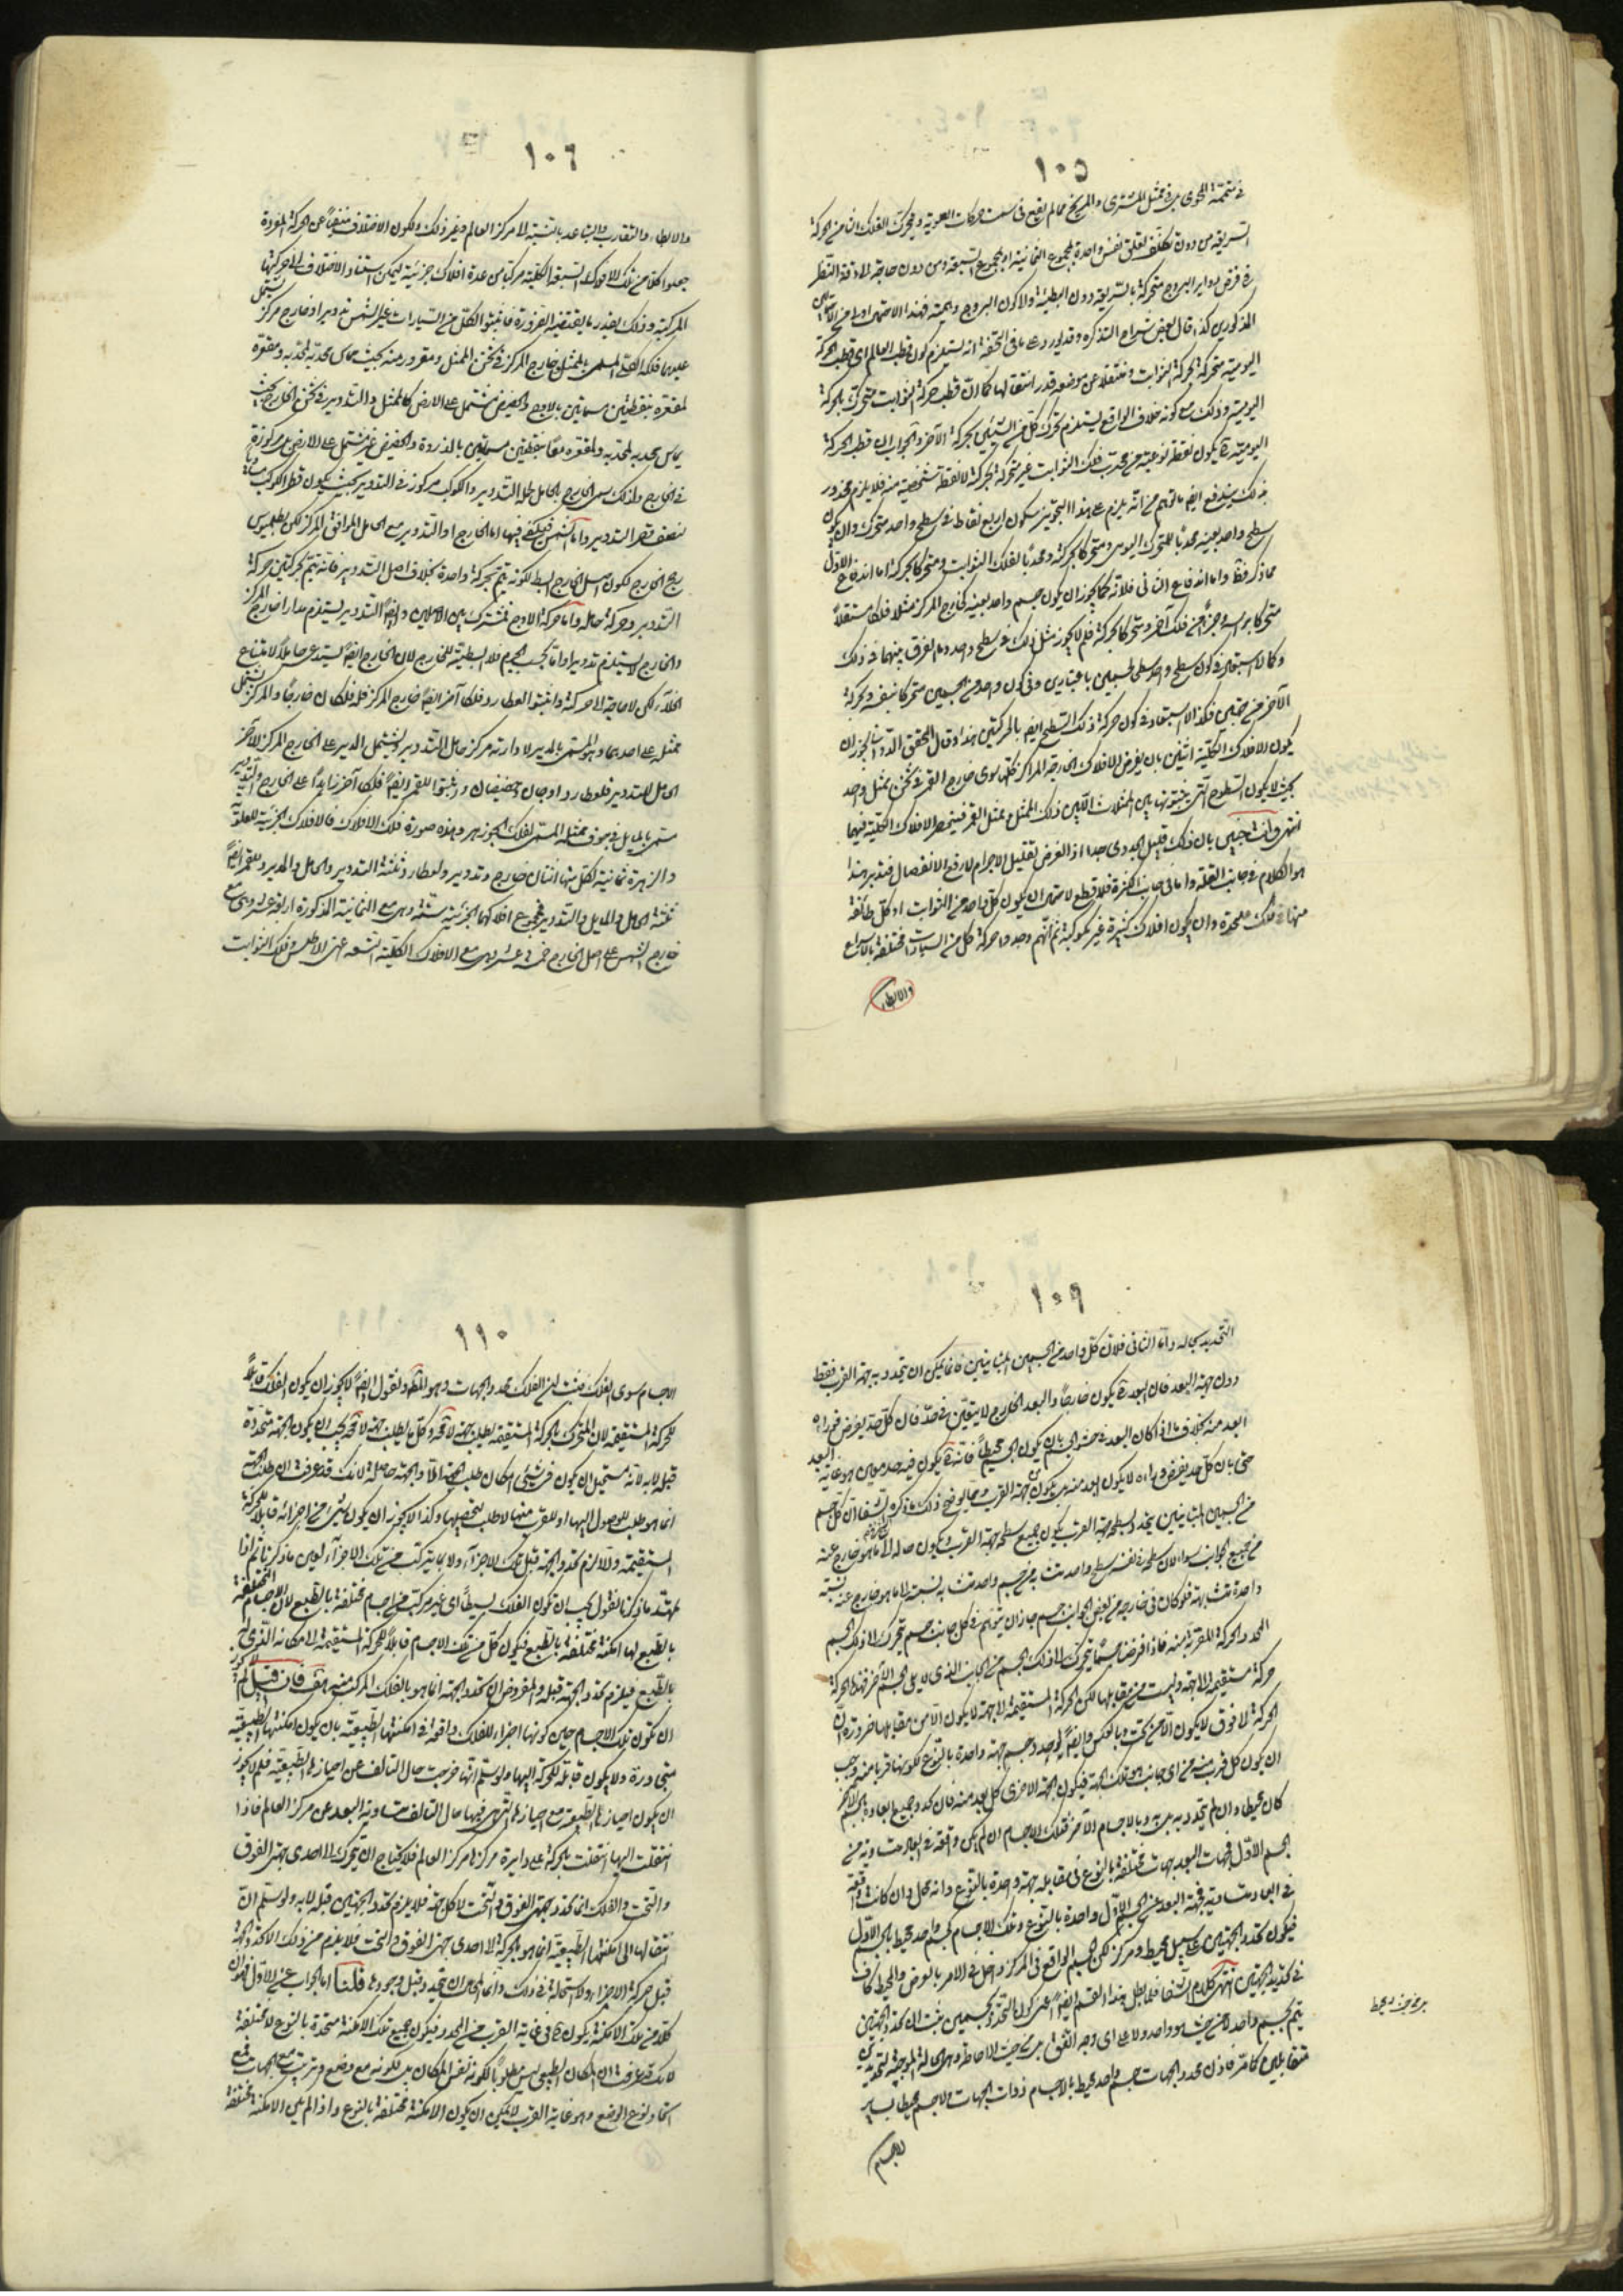 ١٠٥
في متممة المحوى بل في ممثل المشترى والمريخ مما لم يقع في سمت حركات العلوية ويحرك الفلك الثامن الحركة
السريعة من دون تكلف تعلق نفس واحدة بمجموع الثمانية او بمجموع السبعة ومن دون حاجة الى دقة النظر
في فرض دواير البروج متحركة بالسريعة دون البطيئة والا لكون البروج والجمة فهذا الاحتمال اولى من
المذكورين كذا قال بعض شراح التذكرة وقد يورد على ما في التحفة انه يستلزم كون قطب العالم اى قطب الحركة
اليومية متحركة بحركة الثوابت ومنتقلا عن موضعه قدر انتقالها كما ان قطب حركة الثوابت متحرك بالحركة
اليومية وذلك مع كونه خلاف الواقع يستلزم تحرك كل من الشيئين بحركة الآخر والجواب ان قطب الحركة
اليومية يكون نقطة نوعية من محدب فلك الثوابت غير متحركة بحركة لا نقطة شخصية منه فلا يلزم محذور
بذلك يندفع ايضا ما توهم من انه يلزم على هذا التجويز سكون اربع نقاط في سطح واحد متحرك وان يكون
سطح واحد بعينه محدبا للمتحرك اليومى ومتحركا بحركته ومحدبا لفلك الثوابت ومتحركا بحركته اما اندفاع الاول
مما ذكر فقط واما اندفاع الثاني فلانه كما يجوز ان يكون جسم واحد بعينه كخارج المركز مثلا فلكا مستقلا
متحركا براسه وجزءا من فلك آخر ومتحركا بحركته فلم لا يجوز مثل ذلك في سطح واحد وما الفرق بينهما في ذلك
وكما لا استبعاد في كون سطح واحد سطحي لجسمين باعتبارين وفى كون واحد من الجسمين متحركا بنفسه وبحركة
الآخر من جنبين فكذا لا استبعاد في كون حركة ذلك السطح ايضا بالحركتين هذا وقال المحقق الدوانى يجوز ان
يكون الافلاك الكلية اثنين بان يفرض الافلاك الخارجة المراكز كلها سوى خارج القمر في ثخن ممثل واحد
بحيث لا يكون السطوح التي يثبتونها بين الممثلات اللتين ذلك الممثل وممثل القمر فينحصر الافلاك الكلية فيهما
انتهى وانت خبير بان ذلك قليل الجدوى جدا اذ الغرض تقليل الاجرام لا رفع الانفصال فتدبر هذا
هو الكلام في جانب القلة واما في جانب الكثرة فلا قطع لاحتمال ان يكون كل واحد من الثوابت او كل طائفة
منها في فلك على حدة وان يكون افلاك كثيرة غير مكوكبة ثم انهم وجدوا حركة كل من السيارات مختلفة بالاسراع
والابطاء
١٠٦
والابطاء والتقارب والتباعد بالنسبة الى مركز العالم وغير ذلك ولكون الاختلاف منفيا عن الحركة المفردة
جعلوا كلا من تلك الافلاك السبعة الكلية مركبا من عدة افلاك جزئية ليمكن استناد الاختلاف الى حركتها
المركبة وذلك بقدر ما يقتضيه الضرورة فاثبتوا لكل من السيارات غير الشمس تدويرا وخارج مركز يشتمل
عليهما فلكه الكلي المسمى بالممثل خارج المركز في ثخن الممثل ومفرز منه بحيث يماس محدبه لمحدبه ومقعره
لمقعره بنقطتين مسماتين بالاوج والحضيض مشتمل على الارض كالممثل والتدوير في ثخن الخارج بحيث
يماس محدبه لمحدبه ولمقعره معا بنقطتين مسماتين بالذروة والحضيض غير مشتمل على الارض بل مركوزة
في الخارج ولذلك سمى الخارج بالحامل لحمله التدوير والكوكب مركوز في التدوير بحيث يكون قطر الكوكب مساويا
لنصف قطر التدوير واما الشمس فيكفي فيها اما الخارج او التدوير مع الحامل الموافق المركز لكن بطلميوس
رجح الخارج لكون اصل الخارج ابسط لكونه يتم بحركة واحدة بخلاف اصل التدوير فانه يتم بحركتين حركة
التدوير وحركة حامله واما حركة الاوج فمشترك بين الاصلين وايضا التدوير يستلزم مدارا خارج المركز
والخارج لا يستلزم تدويرا واما بحسب الجرم فلا ابسطية للخارج لان الخارج ايضا يستدعي حاملا لامتناع
الخلاء لكن لا حاجة الى حركته واثبتوا لعطارد فلكا آخر ايضا خارج المركز فله فلكان خارجا والمركز يشتمل
ممثله على احدهما وهو المسمى بالمدير لادارته مركز حامل التدوير ويشتمل المدير على الخارج المركز الآخر
الحامل للتدوير فلعطارد اوجان وحضيضان واثبتوا للقمر ايضا فلكا آخر زايدا على الخارج والتدوير
يسمى بالمايل في جوف ممثله المسمى بفلك الجوزهر وهذه صورة فلك الافلاك فالافلاك الجزئية للعلوية
والزهرة ثمانية لكل منها اثنان خارج وتدوير ولعطارد ثلثة التدوير والحامل والمدير وللقمر ايضا
ثلثة الحامل والمايل والتدوير فمجموع افلاكهما الجزئية ستة وهى مع الثمانية المذكورة اربعة عشر وهى مع
خارج الشمس على اصل الخارج خمسة عشر وهى مع الافلاك الكلية التسعة اعنى الاطلس وفلك الثوابت
١٠٩
التحديد بحاله واما الثانى فلان كل واحد من الجسمين المتباينين فانما يمكن ان يتحدد به جهة القرب فقط
دون جهة البعد فان البعد يكون خارجا والبعد الخارج لا يتعين في حد فان كل حد يفرض فوراءه
ابعد منه بخلاف ما اذا كان البعد في حشو الجسم بان يكون الجسم محيطا فانه يكون فيه حد معين هو غاية البعد
حتى بان كل حد يفرض وراءه لا يكون ابعد منه بل يكون جهة القرب ومما يوضح ذلك ما ذكره في الشفا ان كل جسم
من الجسمين المتباينين يتحدد بسطحه جهة القرب يكون جميع سطحه جهة القرب ويكون حاله الى ما هو خارج عنه
من جميع الجوانب سواء لان سطحه في نفسه سطح واحد متشابه من جسم واحد متشابه نسبته الى ما هو خارج عنه نسبة
واحدة متشابهة فلو كان في خارجه من بعض الجوانب جسم جاز ان يتوهم في كل جانب جسم يتحرك الى ذلك الجسم
المحدد الحركة المقربة منه فاذا فرضنا جسما يتحرك الى ذلك الجسم من الجانب الذى لا يلى الجسم الآخر فهذه الحركة
حركة مستقيمة الى جهة وليست من مقابلها لكن الحركة المستقيمة الى جهة لا يكون الا من مقابلها ضرورة ان
الحركة الى فوق لا يكون الا من تحت وبالعكس وايضا لو حدد جسم جهة واحدة بالنوع لكونها قربا منه وجب
ان يكون كل قرب منه من اى جانب هو تلك الجهة فيكون الجهة الاخرى كل بعد منه فان كدد جميع ابعاده بالجسم الآخر
كان محيطا وان لم يتحدد به بل به وبالاجسام الآخر فتلك الاجسام ان لم يكن واقعة في ابعاد متساوية من
الجسم الاول فجهات البعد جهات مختلفة بالنوع في مقابلة جهة واحدة بالنوع وانه محال وان كانت واقعة
في ابعاد متساوية فجهة البعد من الجسم الاول واحدة بالنوع وتلك الاجسام كجسم واحد محيط بالجسم الاول
فيكون تحدد الجهتين على سبيل محيط ومركز لكن الجسم الواقع في المركز دخل في الامر بالعرض والمحيط كاف
في تحديد الجهتين انتهى كلام الشفا فلما بطل هذا القسم ايضا اعنى كون التحدد بجسمين ثبت ان تحدد الجهتين
يتم بجسم واحد لا من حيث هو واحد ولا على اى وجه اتفق بل من حيث الاحاطة وهى الحالة الموجبة لتحديدين
متقابلين كما مر فاذن محدد الجهات جسم واحد محيط بالاجسام ذوات الجهات ولا جسم محيط بساير
الاجسام
بل من حيث يحيط
١١٠
الاجسام سوى الفلك فثبت ان الفلك محدد الجهات وهو المط ونقول ايضا لا يجوز ان يكون الفلك قابلا
للحركة المستقيمة لان المتحرك بالحركة المستقيمة يطلب جهة لا محة وكل ما يطلب جهة لا محة يجب ان يكون الجهة متحددة
قبله لا به لانه مستحيل ان يكون في شئ امكان طلب الجهة الا والجهة حاصلة لانك قد عرفت ان طلب الجهة
انما هو طلب للوصول اليها او للقرب منها لا طلب لتحصيلها وكذا لا يجوز ان يكون شئ من اجزائه قابلا للحركة
المستقيمة والا لزم تحدد الجهة قبل تلك الاجزاء ولا ما يتركب من تلك الاجزاء بعين ما ذكرنا ثم اذا
تمهد ما ذكرنا نقول يجب ان يكون الفلك بسيطا اى غير مركب من اجسام مختلفة بالطبع لان الاجسام المختلفة
بالطبع لها امكنة مختلفة بالطبع فيكون كل من تلك الاجسام قابلا للحركة المستقيمة الى مكانه الذى له
بالطبع فيلزم تحدد الجهة قبله والمفروض ان تحدد الجهة انما هو بالفلك المركب منه هف فان قيل لم لا يجوز
ان تكون تلك الاجسام حين كونها اجزاء للفلك واقعة في امكنتها الطبيعية بان يكون امكنتها الطبيعية
متجاورة ولا يكون قابلة للحركة اليها ولو سلم انها خرجت حال التالف عن احيازها الطبيعية فلم لا يجوز
ان يكون احيازها الطبيعية مع احيازها التى هى فيها حال التالف متساوية البعد عن مركز العالم فاذا
انتقلت اليها انتقلت بالحركة على دايرة مركزها مركز العالم فلا يحتاج الى تحرك الى احدى جهتى الفوق
والتحت والفلك انما يحدد جهتى الفوق والتحت لا كل جهة فلا يلزم تحدد الجهتين قبله لا به ولو سلم ان
انتقالها الى امكنتها الطبيعية انما هو بالحركة الى احدى جهتى الفوق والتحت فلا يلزم من ذلك الا تحدد الجهة
قبل حركة الاجزاء ولا استحالة في ذلك وانما المحال ان يتحدد قبل وجودها قلنا اما الجواب عن الاول فهو ان
كلا من تلك الامكنة يكون في غاية القرب من المحدد فيكون جميع تلك الامكنة متحدة بالنوع لا مختلفة
لانك قد عرفت ان المكان الطبيعي ليس مطلوبا لكونه نفس المكان بل لكونه مع وضع وترتيب من الجهات فمع
اتحاد نوع الوضع وهو غاية القرب لا يمكن ان يكون الامكنة مختلفة بالنوع واذا لم يكن الامكنة مختلفة